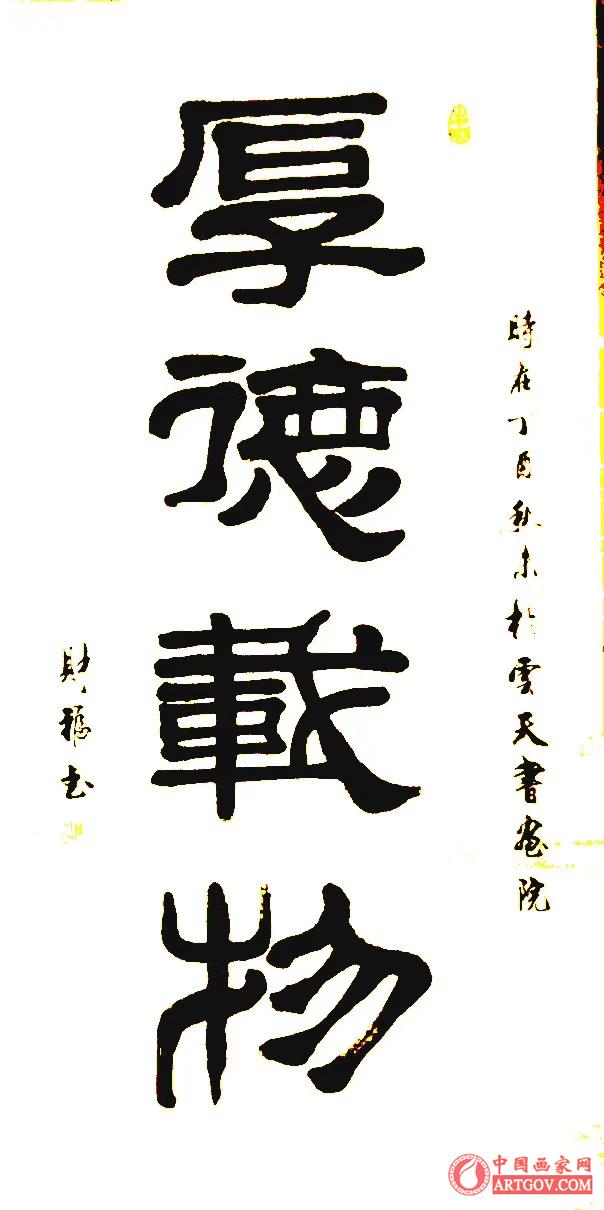 時在丁酉秋末於雲天書畫院
厚德載物
財福书
中国画家网
ARTGOV.COM